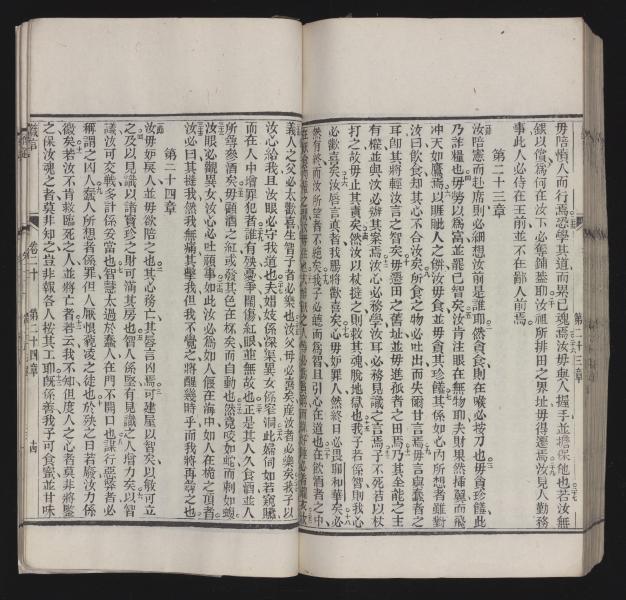 毋陪惱人而行焉恐學其道而䍐己魂焉毋與人握手並擔保他也若汝無
銀以償為何在汝下必奪鋪蓋耶汝祖所排田之界址毋得遷焉汝見人勤務
事此人必侍在王前並不在鄙人前焉
第二十三章
汝陪憲而赴席則必細想汝前是誰耶然貪食則在喉必按刀也毋貪珍饈此
乃詐糧也毋勞以為富並罷己智矣汝肯注眼在無物耶夫財果然揷翼而飛
冲天如鷹焉以睚眦人之餅汝毋食並毋貪其珍饈其係如心內所想者雖對
汝曰飲食知其心不合汝矣所食之物必吐出而失爾甘言焉毋言與蠢者之
耳倒其將輕汝言之智矣毋遷田之舊址並毋進孤者之田焉乃其全能之主
有權並與汝必辦其案焉汝心必務學汝耳必務見識之言焉子不死若以杖
打之故毋止其責矣然汝以杖撻之則救其魂脫地獄也我子若係智則我心
必歡喜矣汝脣言直者我腸將歡喜矣心毋妒罪人然終日必畏聊和華矣必
然有終而汝所望者不絕矣我子必聽而為智且引心在道也在飲酒者之中
義人之父必太歡喜生智子者必樂也汝父母必喜矣產汝者必樂矣我子以
汝心給我且汝眼必守我道也夫娼妓係深渠異女係窄洞此婦伺如若窺賊
而在人中增罪犯者誰有殃憂爭鬧傷紅眼並無故也正是其人久食酒並入
所尋參酒矣毋顧酒之紅或發其色在杯矣而自動也然竟咬如蛇而刺如蝮
汝眼必觀異女汝心必吐頑事如此汝必為如人偃在海中如人在桅之頂者
汝必曰其撻我然我無痛其擊我但我不覺之將醒幾時乎而我將再尋之也
第二十四章
汝毋妒戾人並毋欲陪之也其心務亡其脣言凶焉可建屋以智矣以敏可立
之及以見識以諸寶珍之財可滿其房也智人係堅有見識之人增力矣以智
議汝可交戰多計係妥當也智慧太過於蠢人在門不開口也謀行惡弊者必
稱謂之凶人蠢人所想者係罪但人厭恨藐凌之徒也於殃之日若廢汝力係
微矣若汝不肯救臨死之人並將亡者若云我不知但度人之心者莫非將鑒
之保汝魂之者莫非知之豈非報各人按其工耶旣係善我子可食蜜並甘味
箴言
卷二十
第二十四章
十四